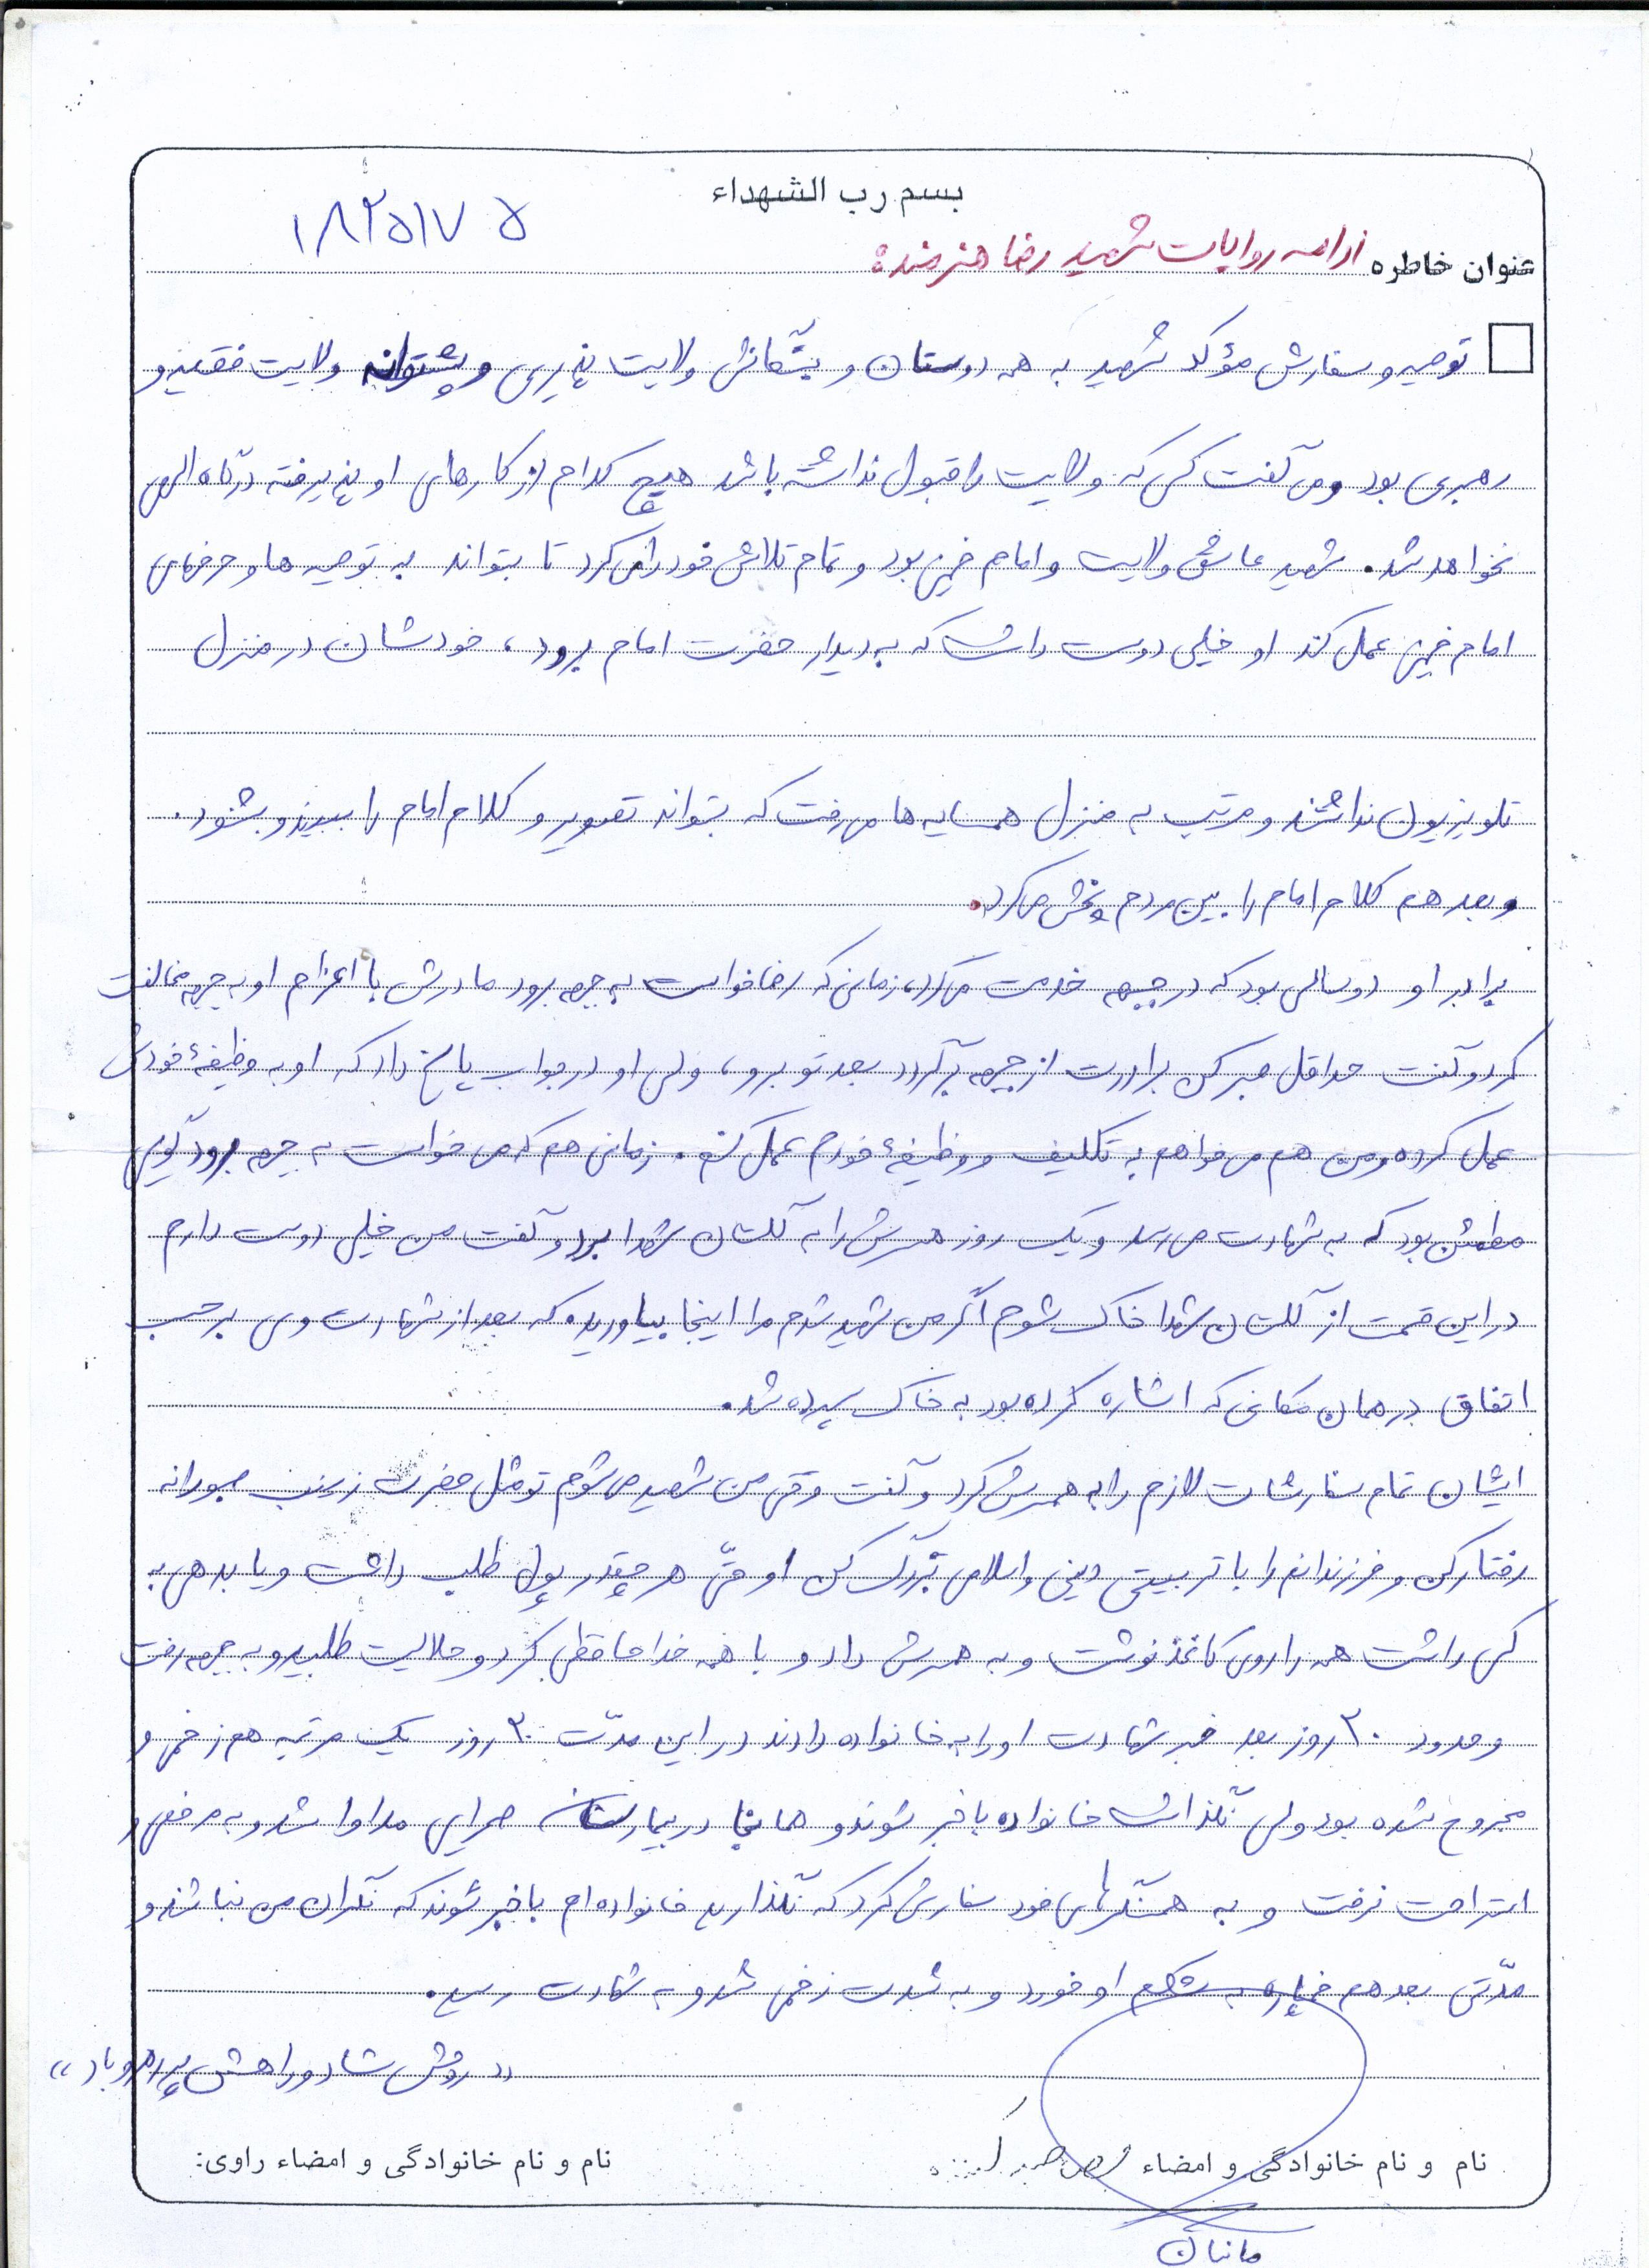 بسم رب الشهداء
۱۸۲۵۱۷۵
عنوان خاطره ادامه روایات شهید رضا هنرمند:
توصیه و سفارش مؤکد شهید به همه دوستان و بستگانش ولایت پذیری و پشتوانه ولایت فقیه و
رهبری بود و می گفت کسی که ولایت را قبول نداشته باشد هیچ کدام از کارهای او پذیرفته درگاه الهی
نخواهد شد. شهید عاشق ولایت و امام خمینی بود و تمام تلاش خود را می کرد تا بتواند به توصیه ها و حرفهای
امام خمینی عمل کند او خیلی دوست داشت که به دیدار حضرت امام برود، خودشان در منزل
تلویزیون نداشتند و مرتب به منزل همسایه ها می رفت که بتواند تصویر و کلام امام را ببیند و بشنود.
و بعد هم کلام امام را بین مردم پخش می کرد.
برادر او دو سالی بود که در جبهه خدمت می کرد، زمانی که رضا خواست به جبهه برود مادرش با اعزام او به جبهه مخالفت
کرد و گفت حداقل صبر کن برادرت از جبهه برگردد بعد تو برو، ولی او در جواب پاسخ داد که او به وظیفهٔ خودش
عمل کرده و من هم می خواهم به تکلیف و وظیفهٔ خودم عمل کنم. زمانی هم که می خواست به جبهه برود گویی
مطمئن بود که به شهادت می رسد و یک روز همسرش را به گلستان شهدا برد و گفت من خیلی دوست دارم
در این قسمت از گلستان شهدا خاک شوم اگر من شهید شدم مرا اینجا بیاورید، که بعد از شهادت وی بر حسب
اتفاق در همان مکانی که اشاره کرده بود به خاک سپرده شد.
ایشان تمام سفارشات لازم را به همسرش کرد و گفت وقتی من شهید می شوم تو مثل حضرت زینب صبورانه
رفتار کن و فرزندانم را با تربیتی دینی و اسلامی بزرگ کن او حتّی هر چقدر پول طلب داشت و یا بدهی به
کسی داشت همه را روی کاغذ نوشت و به همسرش داد و با همه خداحافظی کرد و حلالیت طلبید و به جبهه رفت
و حدود ۲۰ روز بعد خبر شهادت او را به خانواده دادند در این مدّت ۲۰ روز یک مرتبه هم زخمی و
مجروح شده بود ولی نگذاشت خانواده با خبر شوند و همانجا در بیمارستان صحرایی مداوا شد و به مرخصی و
استراحت نرفت و به همسنگرهای خود سفارش کرد که نگذارید خانواده ام با خبر شوند که نگران من نباشند و
مدّتی بعد هم خمپاره به شکم او خورد و به شدت زخمی شد و به شهادت رسید.
«روحش شاد و راهش پر رهرو باد»
نام و نام خانوادگی و امضاء
نام و نام خانوادگی و امضاء راوی: